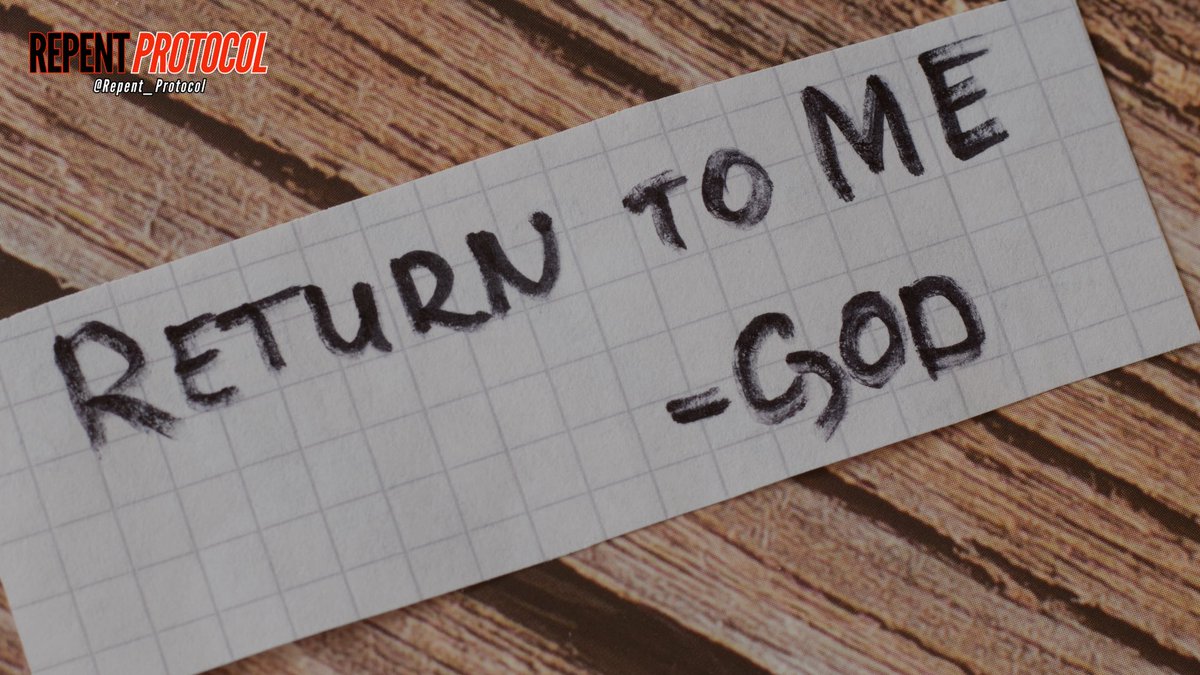 REPENT PROTOCOL
@Repent_Protocol
RETURN TO ME
-GOD